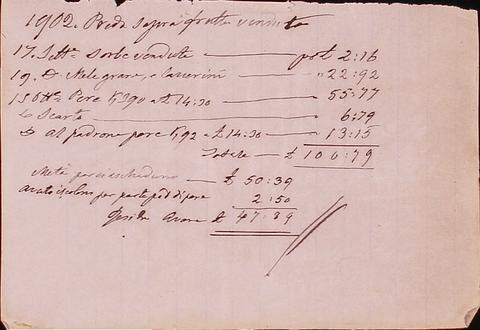 1902. Preda sopra frutta venduta
17. Sett.e Sorbe vendute pot 2:16
19. D.o Mele grane, e lazerini " 22:92
15 8tt.e Pere K 390 a £ 14:30 55:77
Scarto 6:79
D.o Al padrone pere K 92 a £ 14:30 13:15
Totale £ 100:79
Metà per ciascheduno £ 50:39
per parte 2:50
Avere £ 47:89